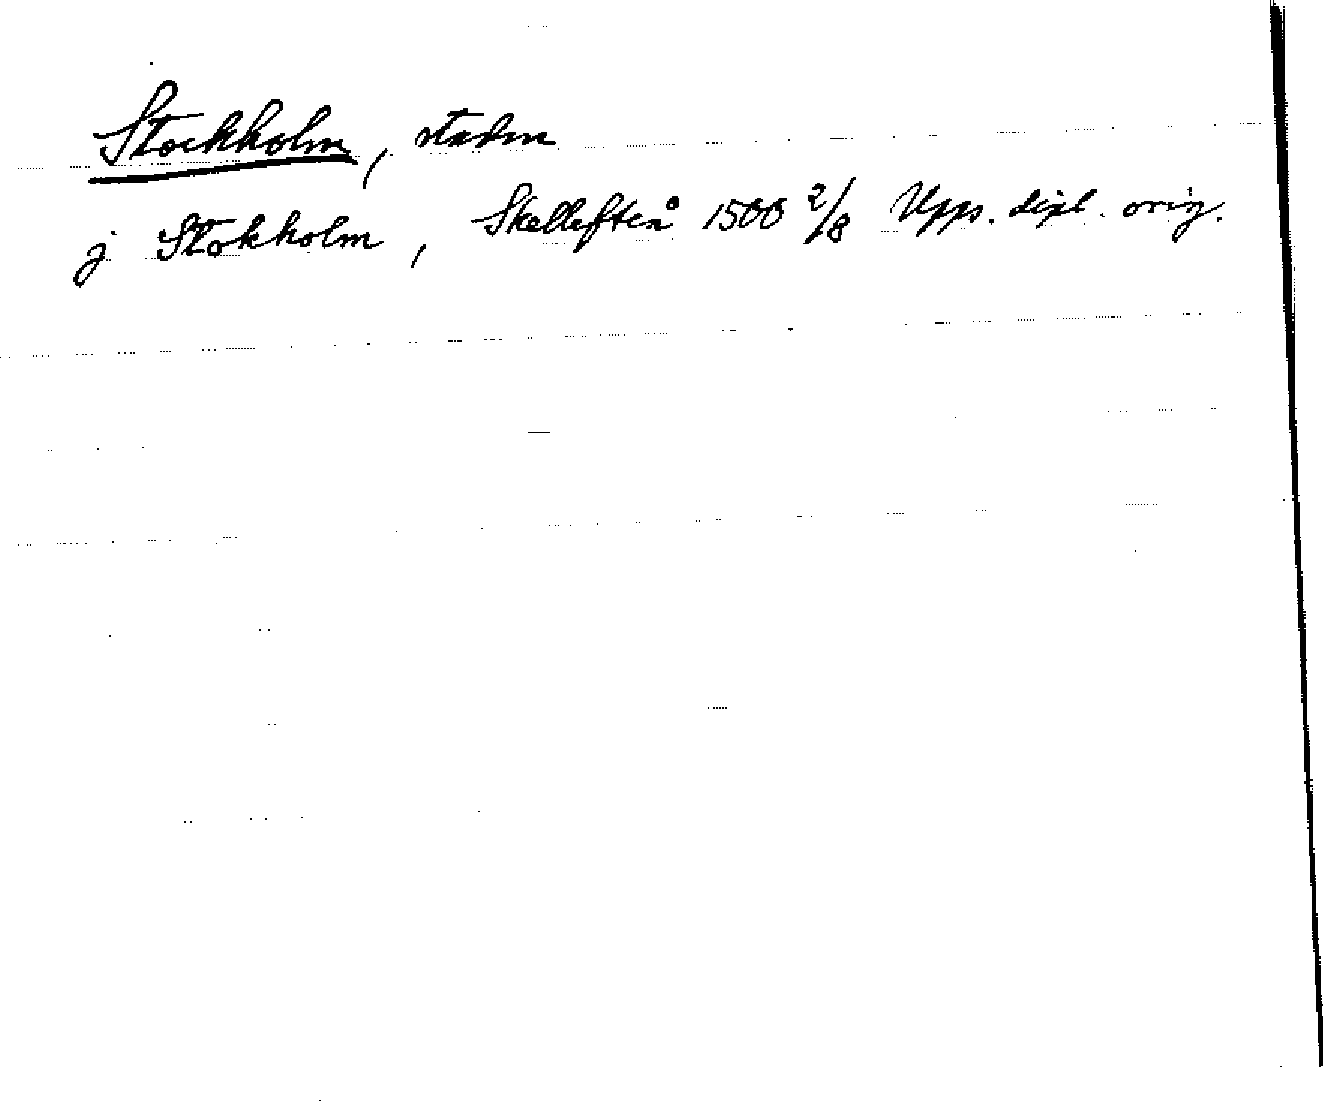 Stockholm, staden
j Stokholm, Skellefteå 1500 2/8 Upps. dipl. orig.